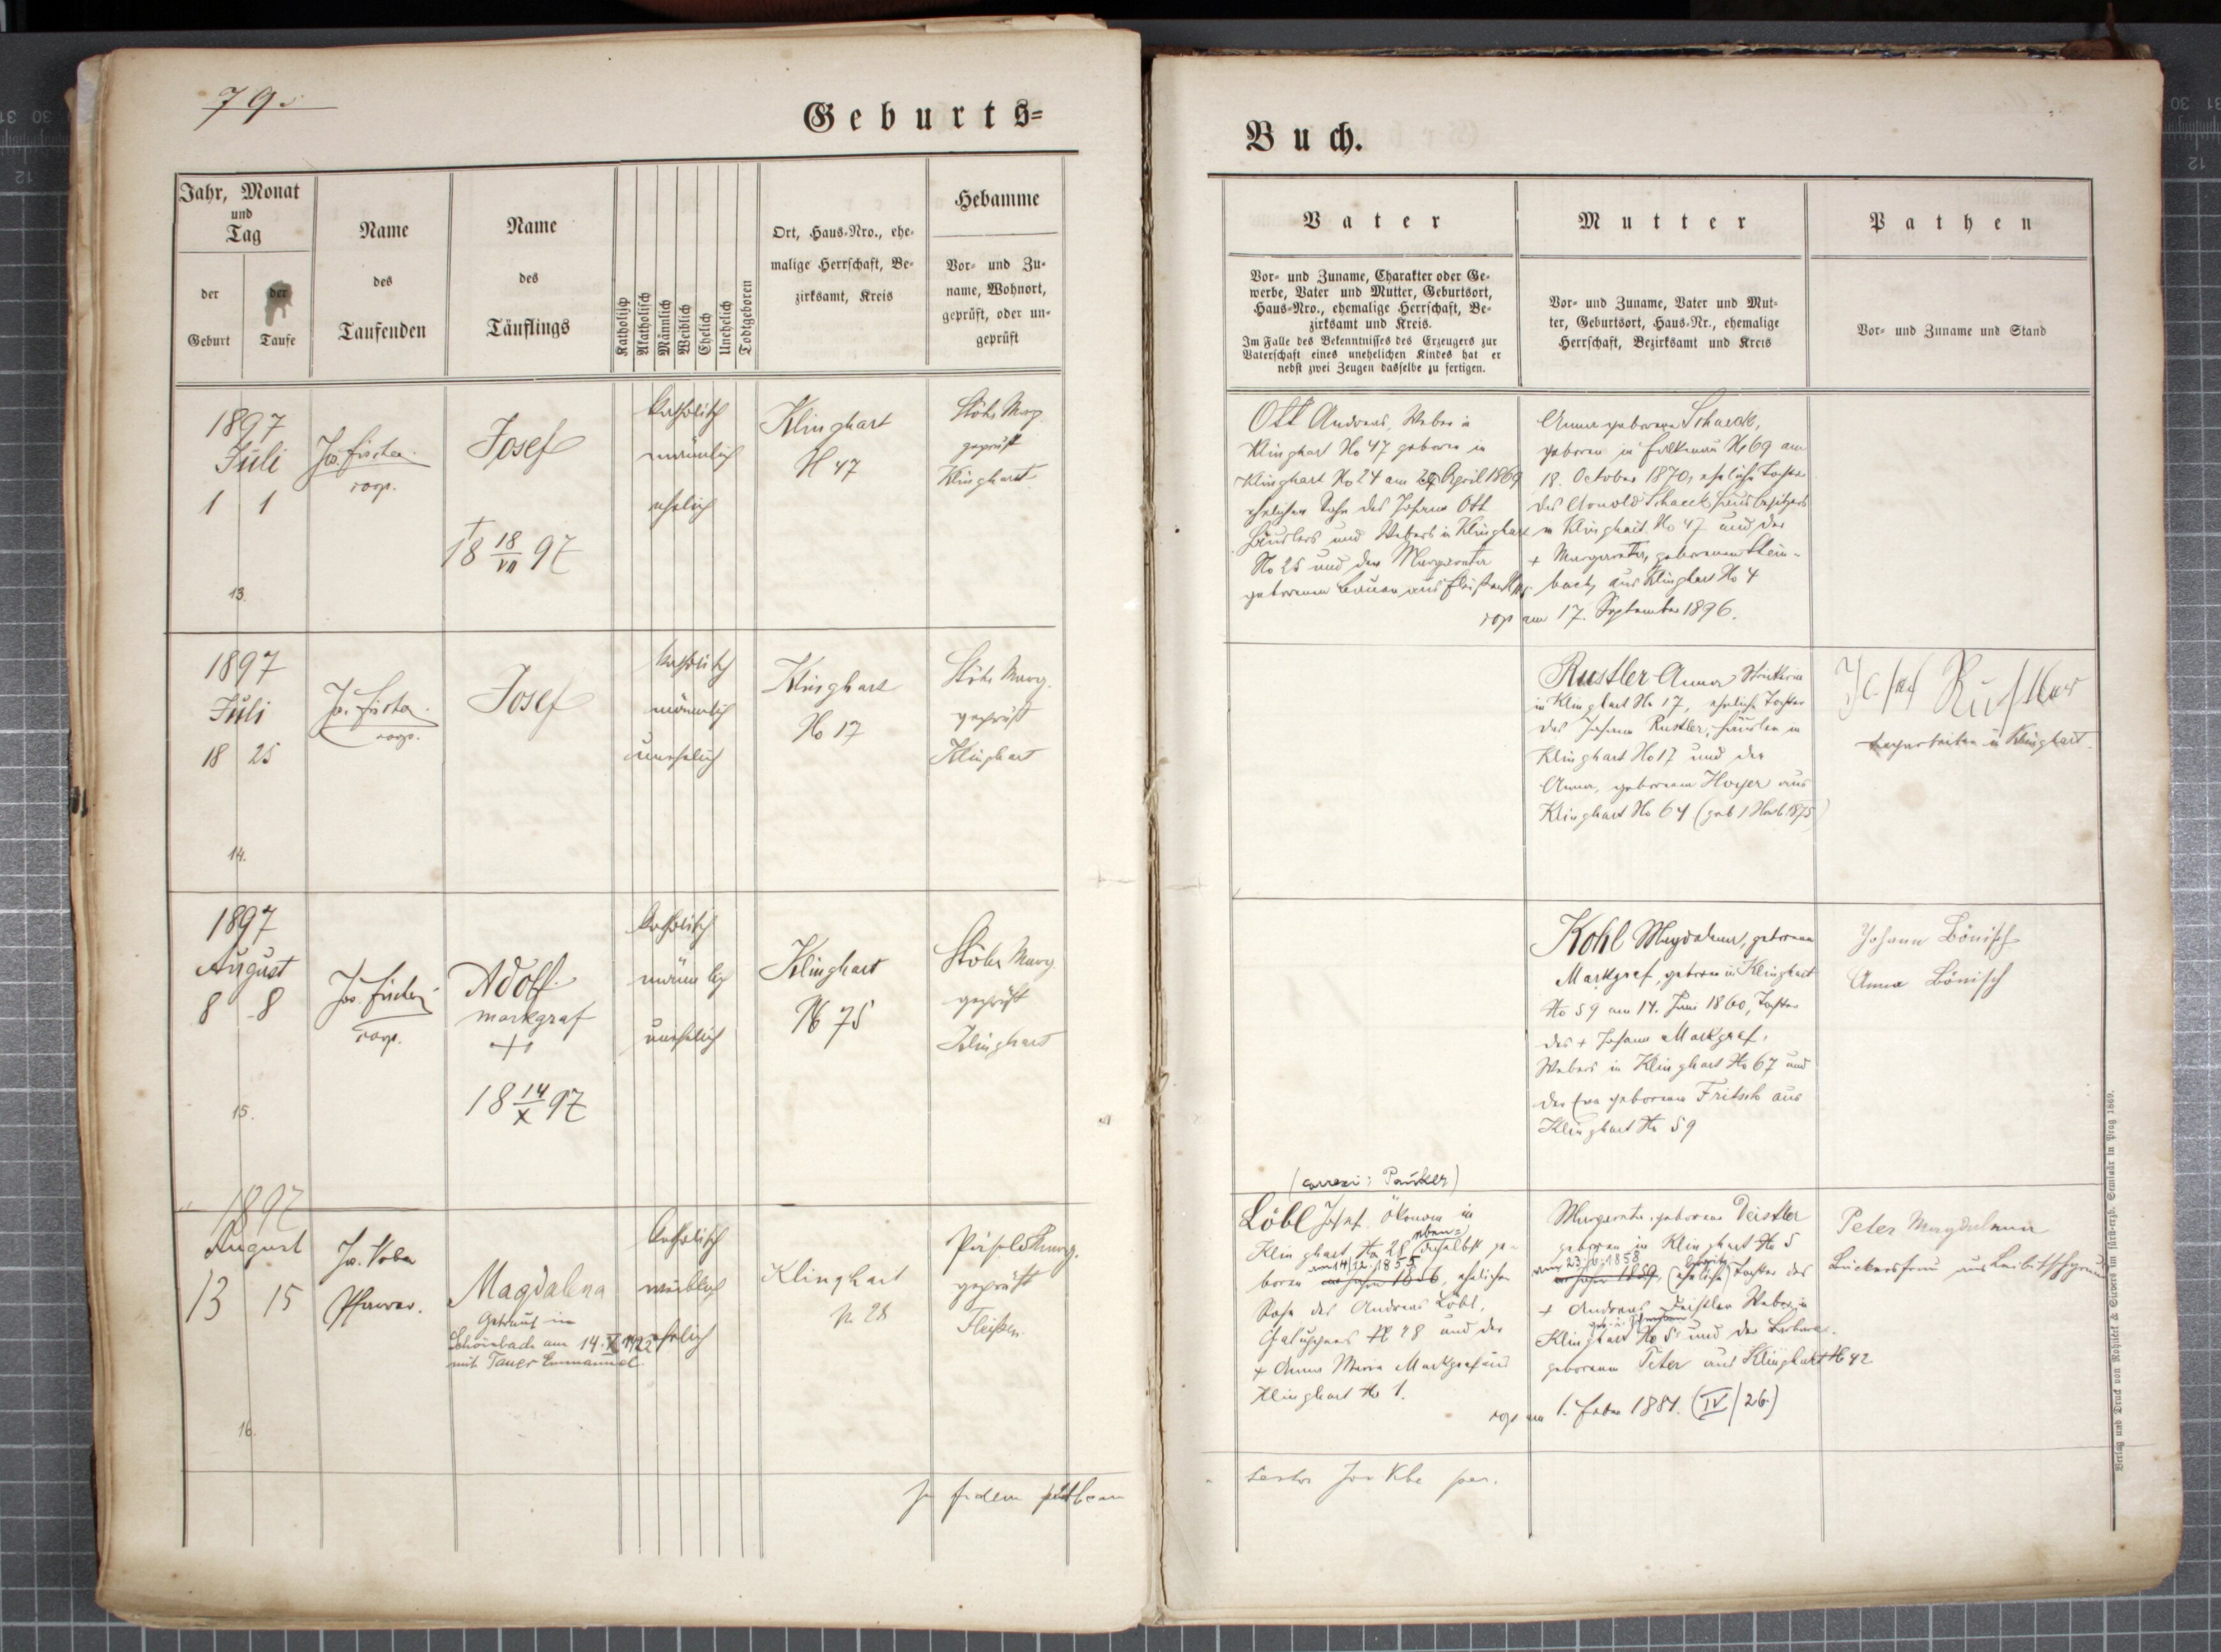 79.
Geburts=
Jahr, Monat
und
Tag
der
Geburt
der
Taufe
Name
des
Taufenden
Name
des
Täuflings
Katholisch
Akatholisch
Männlich
Weiblich
Ehelich
Unehelich
Todtgeboren
Ort, Haus-Nro., ehe-
malige Herrschaft, Be-
zirksamt, Kreis
Hebamme
Vor- und Zu-
name, Wohnort,
geprüft, oder un-
geprüft
1897
Juli
1 1
13.
Jos. Fischer
coop.
Josef
†
18 18/VII 97
katholisch
männlich
ehelich
Klinghart
N 47
Stöhr Marg.
geprüft
Klinghart
1897
Juli
18 25
14.
Jos. Fischer
coop.
Josef
katholisch
männlich
unehelich
Klinghart
No 17
Stöhr Marg.
geprüft
Klinghart
1897
August
8 8
15.
Jos. Fischer
coop.
Adolf
Markgraf
+
18 14/X 97
katholisch
männlich
unehelich
Klinghart
N 75
Stöhr Marg.
geprüft
Klinghart
1897
August
13 15
16.
Jos. Koba
Pfarrer.
Magdalena
Getraut in
Schönbach am 14. X. 1922
mit Tauer Emmanuel.
katholisch
weiblich
ehelich
Klinghart
N. 28
geprüft
Fleißen
Buch.
Vater
Vor- und Zuname, Charakter oder Ge-
werbe, Vater und Mutter, Geburtsort,
Haus-Nro., ehemalige Herrschaft, Be-
zirksamt und Kreis.
Im Falle des Bekenntnisses des Erzeugers zur
Vaterschaft eines unehelichen Kindes hat er
nebst zwei Zeugen dasselbe zu fertigen.
Mutter
Vor- und Zuname, Vater und Mut-
ter, Geburtsort, Haus-Nr., ehemalige
Herrschaft, Bezirksamt und Kreis
Pathen
Vor- und Zuname und Stand
Ott Andreas, Weber in
Klinghart No 47 geboren in
Klinghart No 24 am April 1869
ehelicher Sohn des Johann Ott
Häuslers und Webers in Klinghart
No 25 und der Margaretha
geborenen aus
Anna geborene Schaeck,
geboren in Falkenau No 69 am
18. October 1870, eheliche Tochter
des Arnold Schaeck, Hausbesitzers
in Klinghart No 47 und der
+ Margaretha, geborenen Stein-
bach, aus Klinghart No 4
cop am 17. September 1896.
Rustler Anna Strickerin
in Klinghart No 17, eheliche Tochter
des Johann Rustler, Häusler in
Klinghart No 17 und der
Anna, geborenen Hoyer aus
Klinghart No 64 (geb 1 Nov 1875)
Josef Rustler
in Klinghart.
Kohl Magdalena, geborene
Markgraf, geboren in Klinghart
No 59 am 14. Juni 1860, Tochter
des + Johann Markgraf,
Webers in Klinghart No 67 und
der Eva geborenen Fritsch aus
Klinghart No 59
Johann Bönisch
Anna Bönisch
Löbl Josef, Ökonom in
Klinghart No 28 eben=
daselbst ge-
boren am 14/12. 1855, ehelicher
Sohn des Andreas Löbl,
No 28 und der
+ Anna Maria Markgraf aus
Klinghart No 1.
Margaretha, geborene Deistler
geboren in Klinghart No 5
1858
eheliche Tochter des
+ Andreas Deistler Weber in
Klinghart No 5 und der Barbara
geborenen Peter aus Klinghart No 42
cop am 1. Feber 1881. (IV/26)
Peter Magdalena
Bäckersfrau aus
Verlag und Druck von Rohliček & Sievers im fürsterzb. Seminär in Prag 1869.